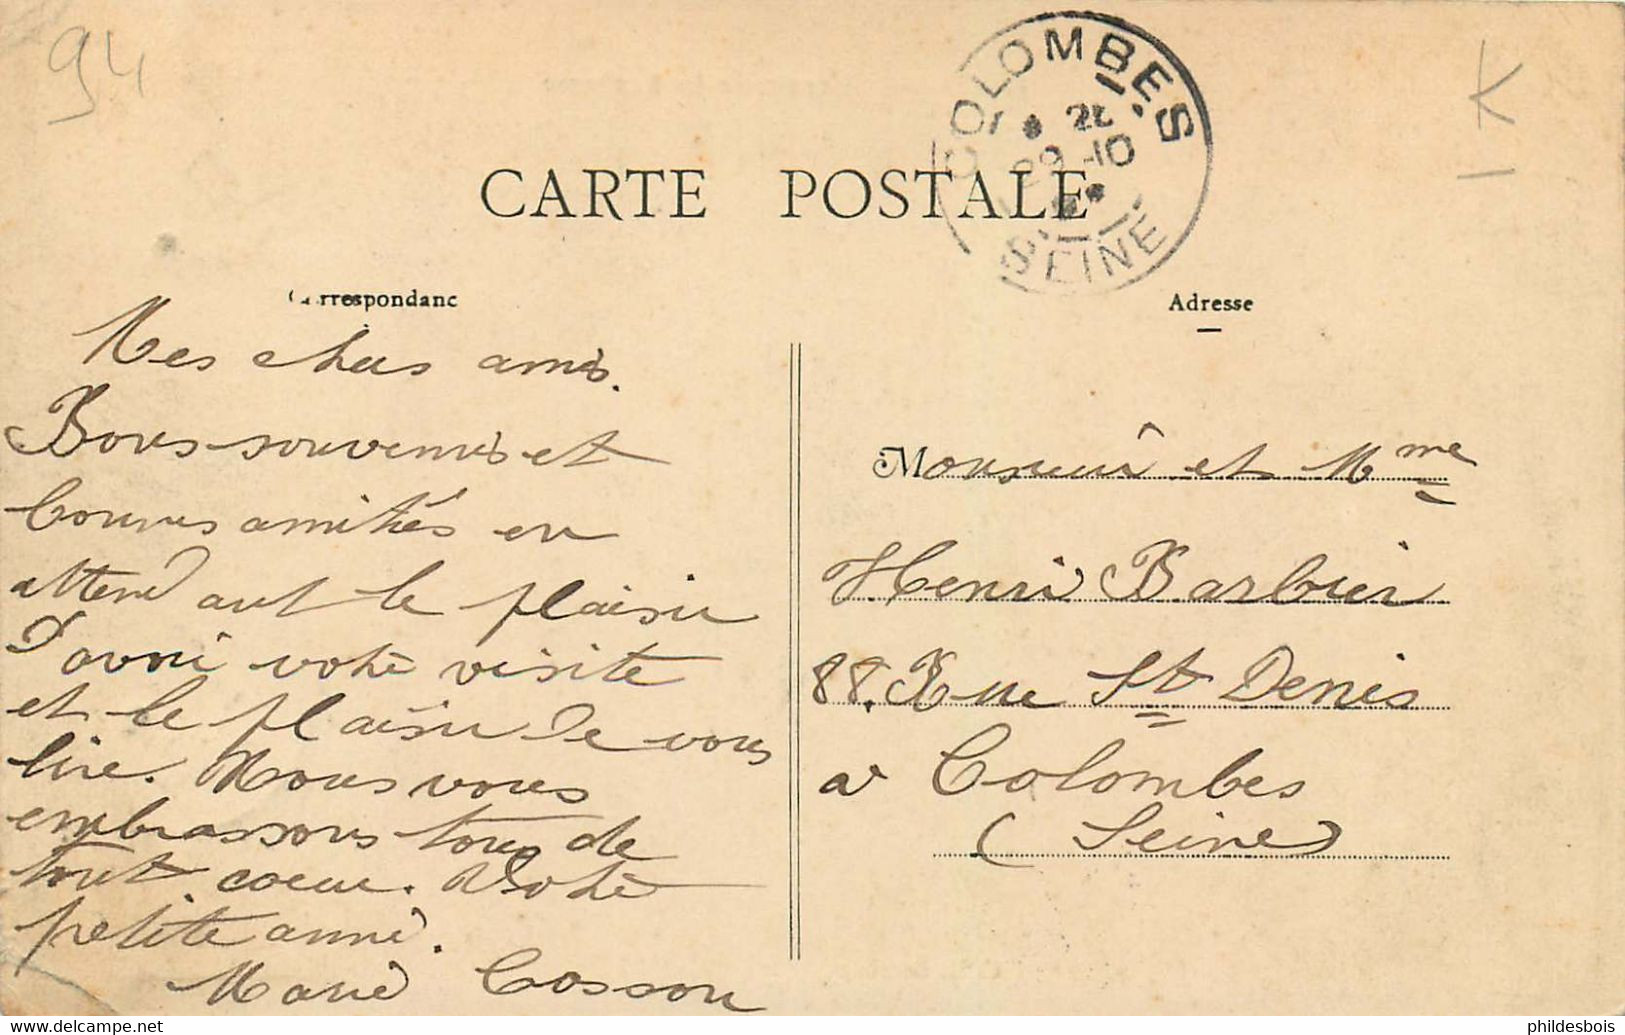 94
K
COLOMBES
29 -10
SEINE
CARTE POSTALE
Correspondanc
Adresse
Mes chers amis.
Bons souvenirs et
bonnes amitiés en
attendant le plaisir
d'avoir votre visite
et le plaisir de vous
lire. Nous vous
embrassons tous de
tout coeur. Votre
petite amie.
Marie Cosson
Monsieur et Mme
Henri Barbier
88. Rue St Denis
a Colombes
(Seine)
phildesbois